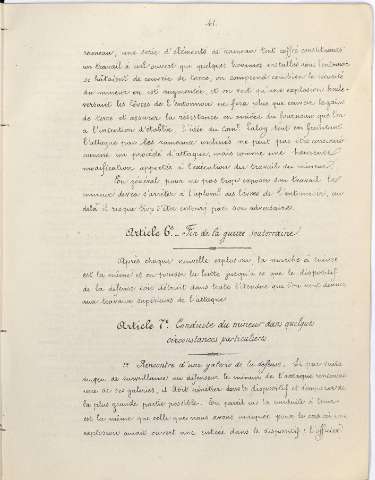 41.
rameau, une série d'éléments de rameau tout coffré constituant
un travail à ciel ouvert que quelques hommes installés sous l'entonnoir
se hâtaient de couvrir de terre, on comprend combien la sécurité
du mineur en est augmentée, et on voit qu'une explosion boule-
versant les lèvres de l'entonnoir ne fera plus que couvrir la gaine
de terre et assurer la résistance en arrière du fourneau que l'on
a l'intention d'établir. L'idée du Comt tout en facilitant
l'attaque par les rameaux inclinés ne peut pas être considérée
comme un procédé d'attaque, mais comme une heureuse
modification apportée à l'exécution du travail du mineur.
En général pour ne pas trop exposer son travail le
mineur devra s'arrêter à l'aplomb des lèvres de l'entonnoir, au
delà il risque trop d'être entouré par son adversaire.
Article 6e. Fin de la guerre souterraine
Après chaque nouvelle explosion la marche à suivre
est la même et on pousse la lutte jusqu'à ce que le dispositif
de la défense soit détruit dans toute l'étendue que l'on veut donner
aux travaux supérieurs de l'attaque
Article 7e. Conduite du mineur dans quelques
circonstances particulières
1° Rencontre d'une galerie de la défense. Si par suite
du peu de surveillance du défenseur le mineur de l'attaque rencontre
une de ses galeries, il doit pénétrer dans le dispositif et s'emparer de
la plus grande partie possible. On parait sa conduite à tenir
est la même que celle que nous avons indiquée pour le cas où une
explosion aurait ouvert une entrée dans le dispositif : l'officier